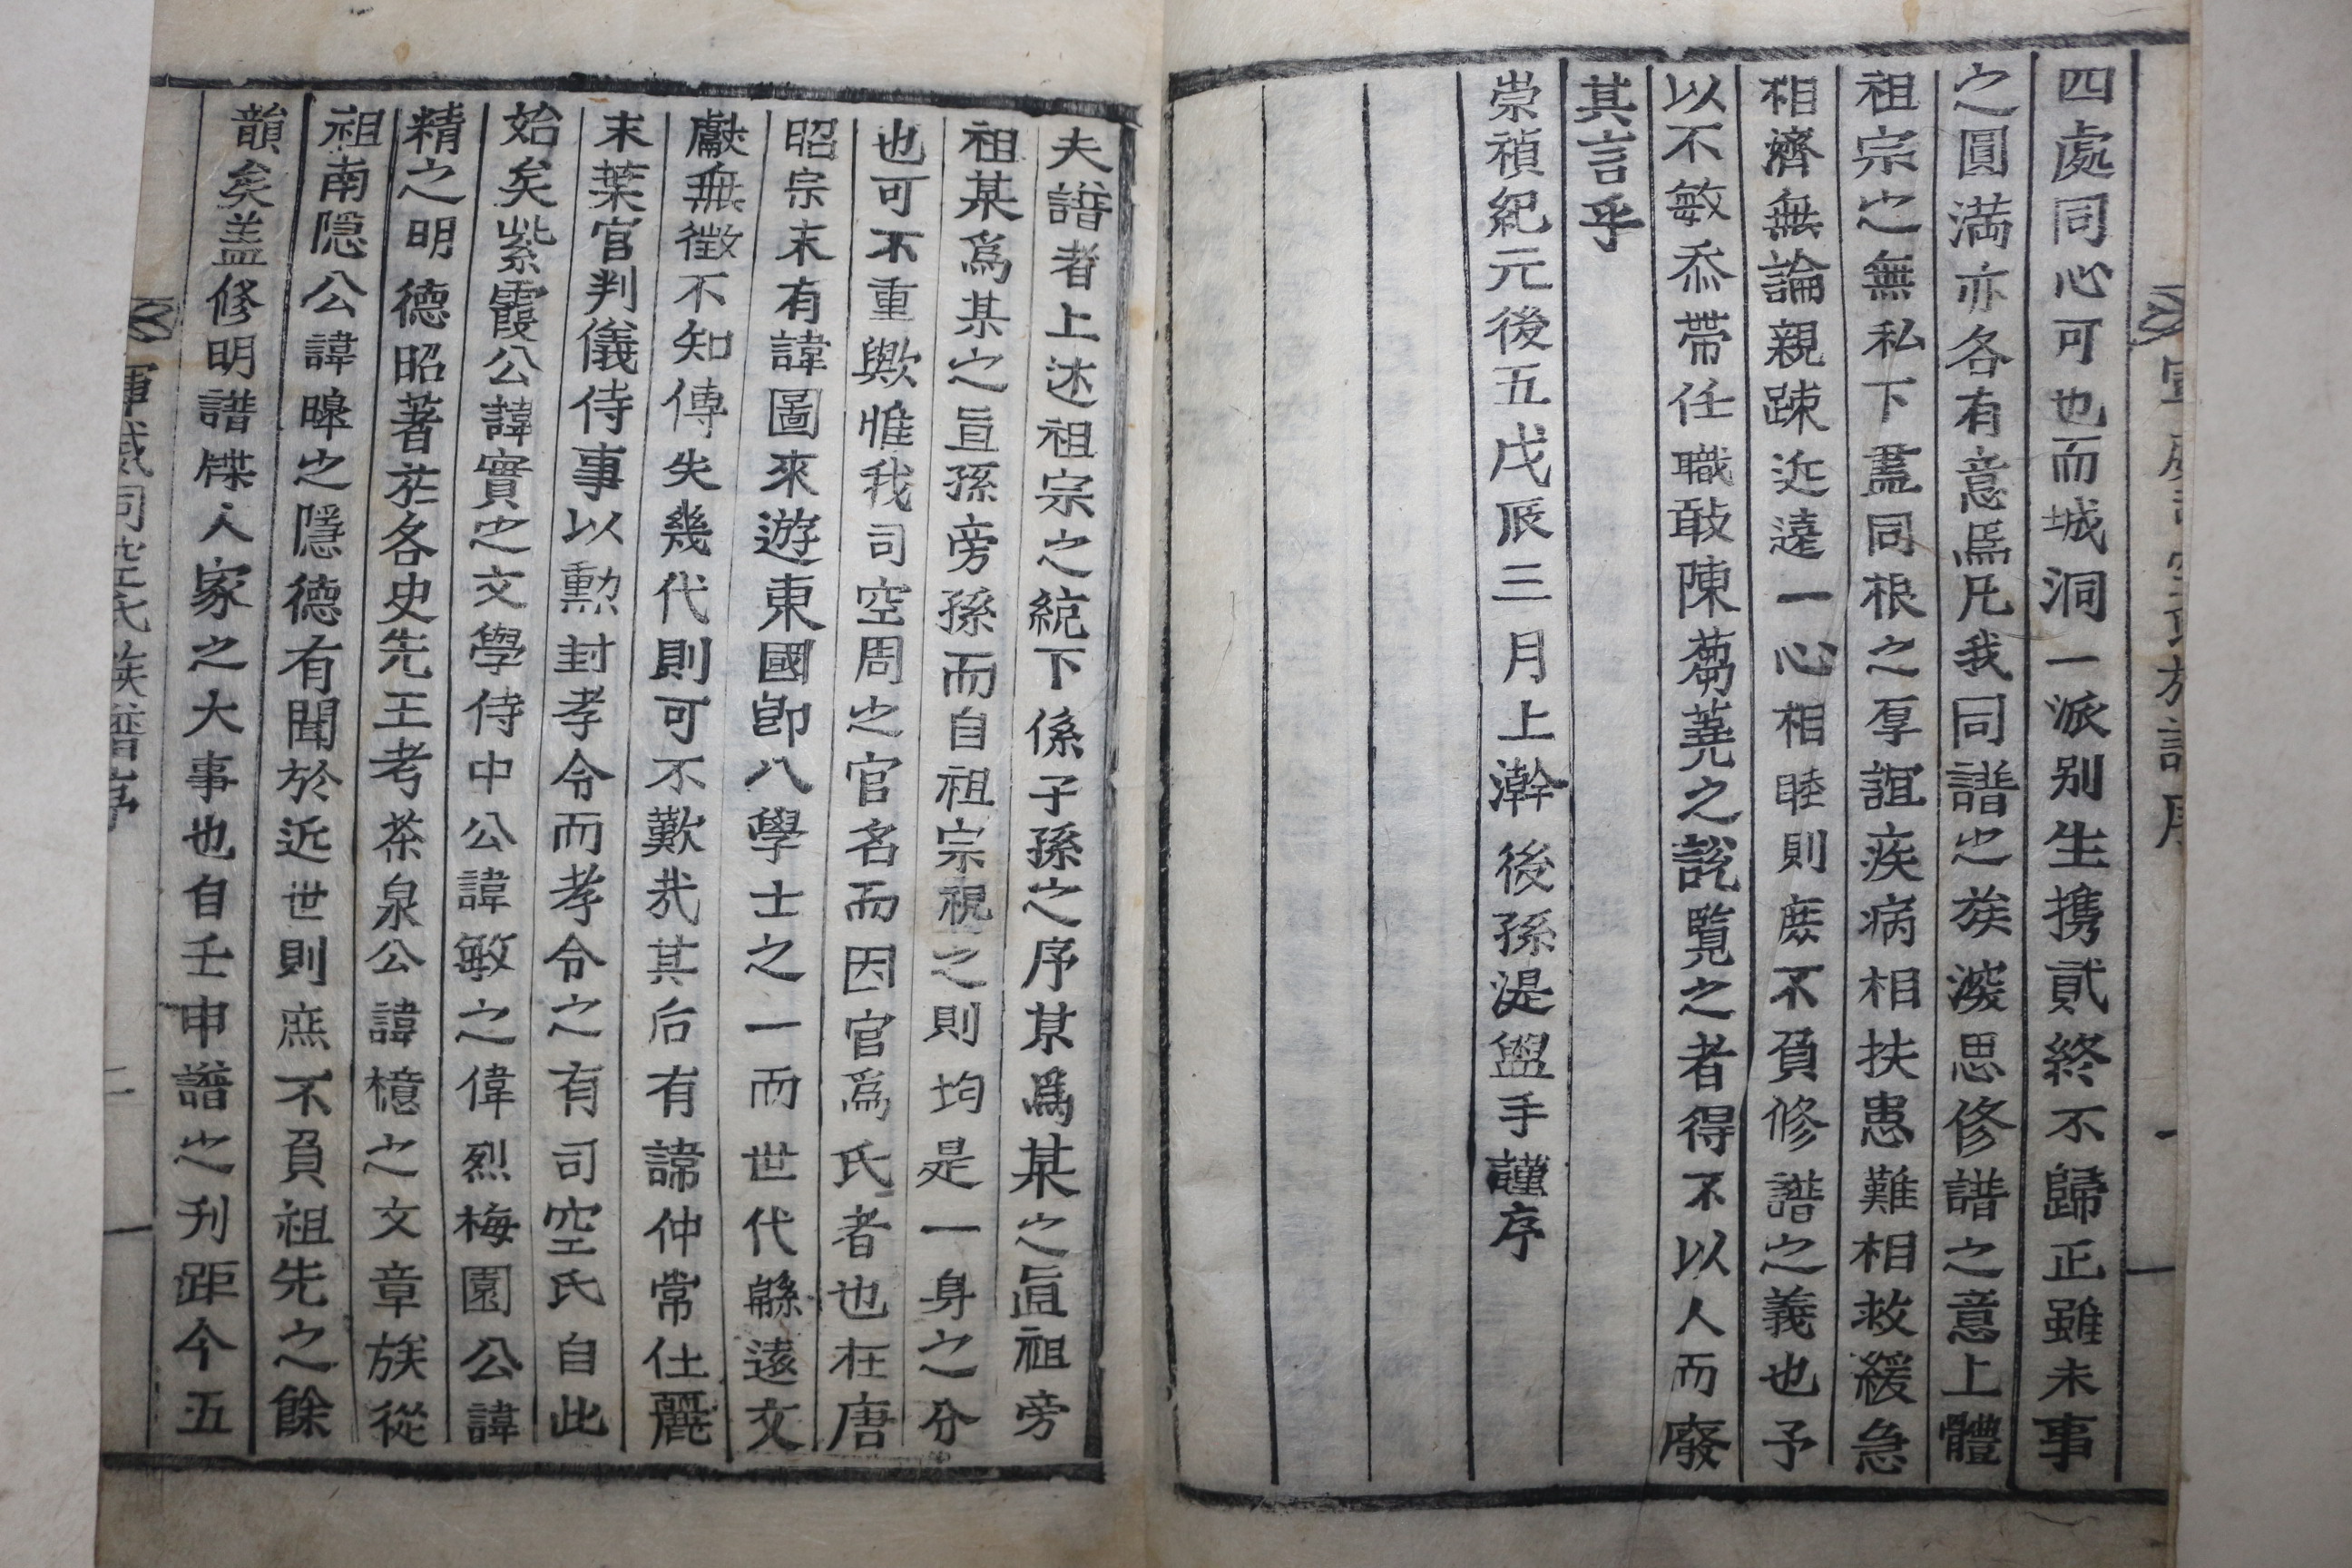 四處同心可也而城洞一派别生携貳終不歸正雖未事
之圓満亦各有意焉凡我同譜之族潑思修譜之意上體
祖宗之無私下盖同根之厚誼疾病相扶患難相救緩急
相濟無論親踈近遠一心相睦則庶不負修譜之義也予
以不敏忝帶任職敢陳蒭蕘之說覽之者得不以人而廢
其言乎
崇禎紀元後五戊辰三月上澣後孫湜盥手謹序
夫譜者上述祖宗之統下係子孫之序某爲某之直祖旁
祖某爲某之直孫旁孫而自祖宗視之則均是一身之分
也可不重歟惟我司空周之官名而因官爲氏者也在唐
昭宗末有諱圖來遊東國卽八學士之一而世代緜遠文
獻無徵不知傳失幾代則可不歎哉其后有諱仲常仕麗
末葉官判儀侍事以勲封孝令而孝令之有司空氏自此
始矣紫霞公諱實之文學侍中公諱敏之偉烈梅園公諱
精之明德昭著在各史先王考茶泉公諱檍之文章族從
祖南隠公諱皥之隱德有聞於近世則庶不負祖先之餘
韻矣盖修明譜牒人家之大事也自壬申譜之刋距今五
軍威司空氏族譜序 二